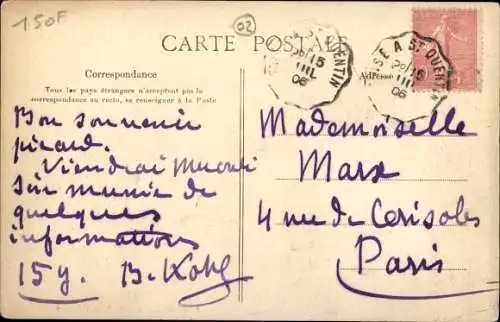 150F
02
CARTE POSTALE
A ST QUENTIN
15
06
SE A ST QUENTIN
15
06
Correspondance
Adresse
Tous les pays étrangers n'acceptent pas la
correspondance au recto, se renseigner à la Poste
Bon souvenir
picard.
Viendrai
munie de
quelques
informations
15 y. B. Kohl
Mademoiselle
Marx
4 rue de Cerisoles
Paris